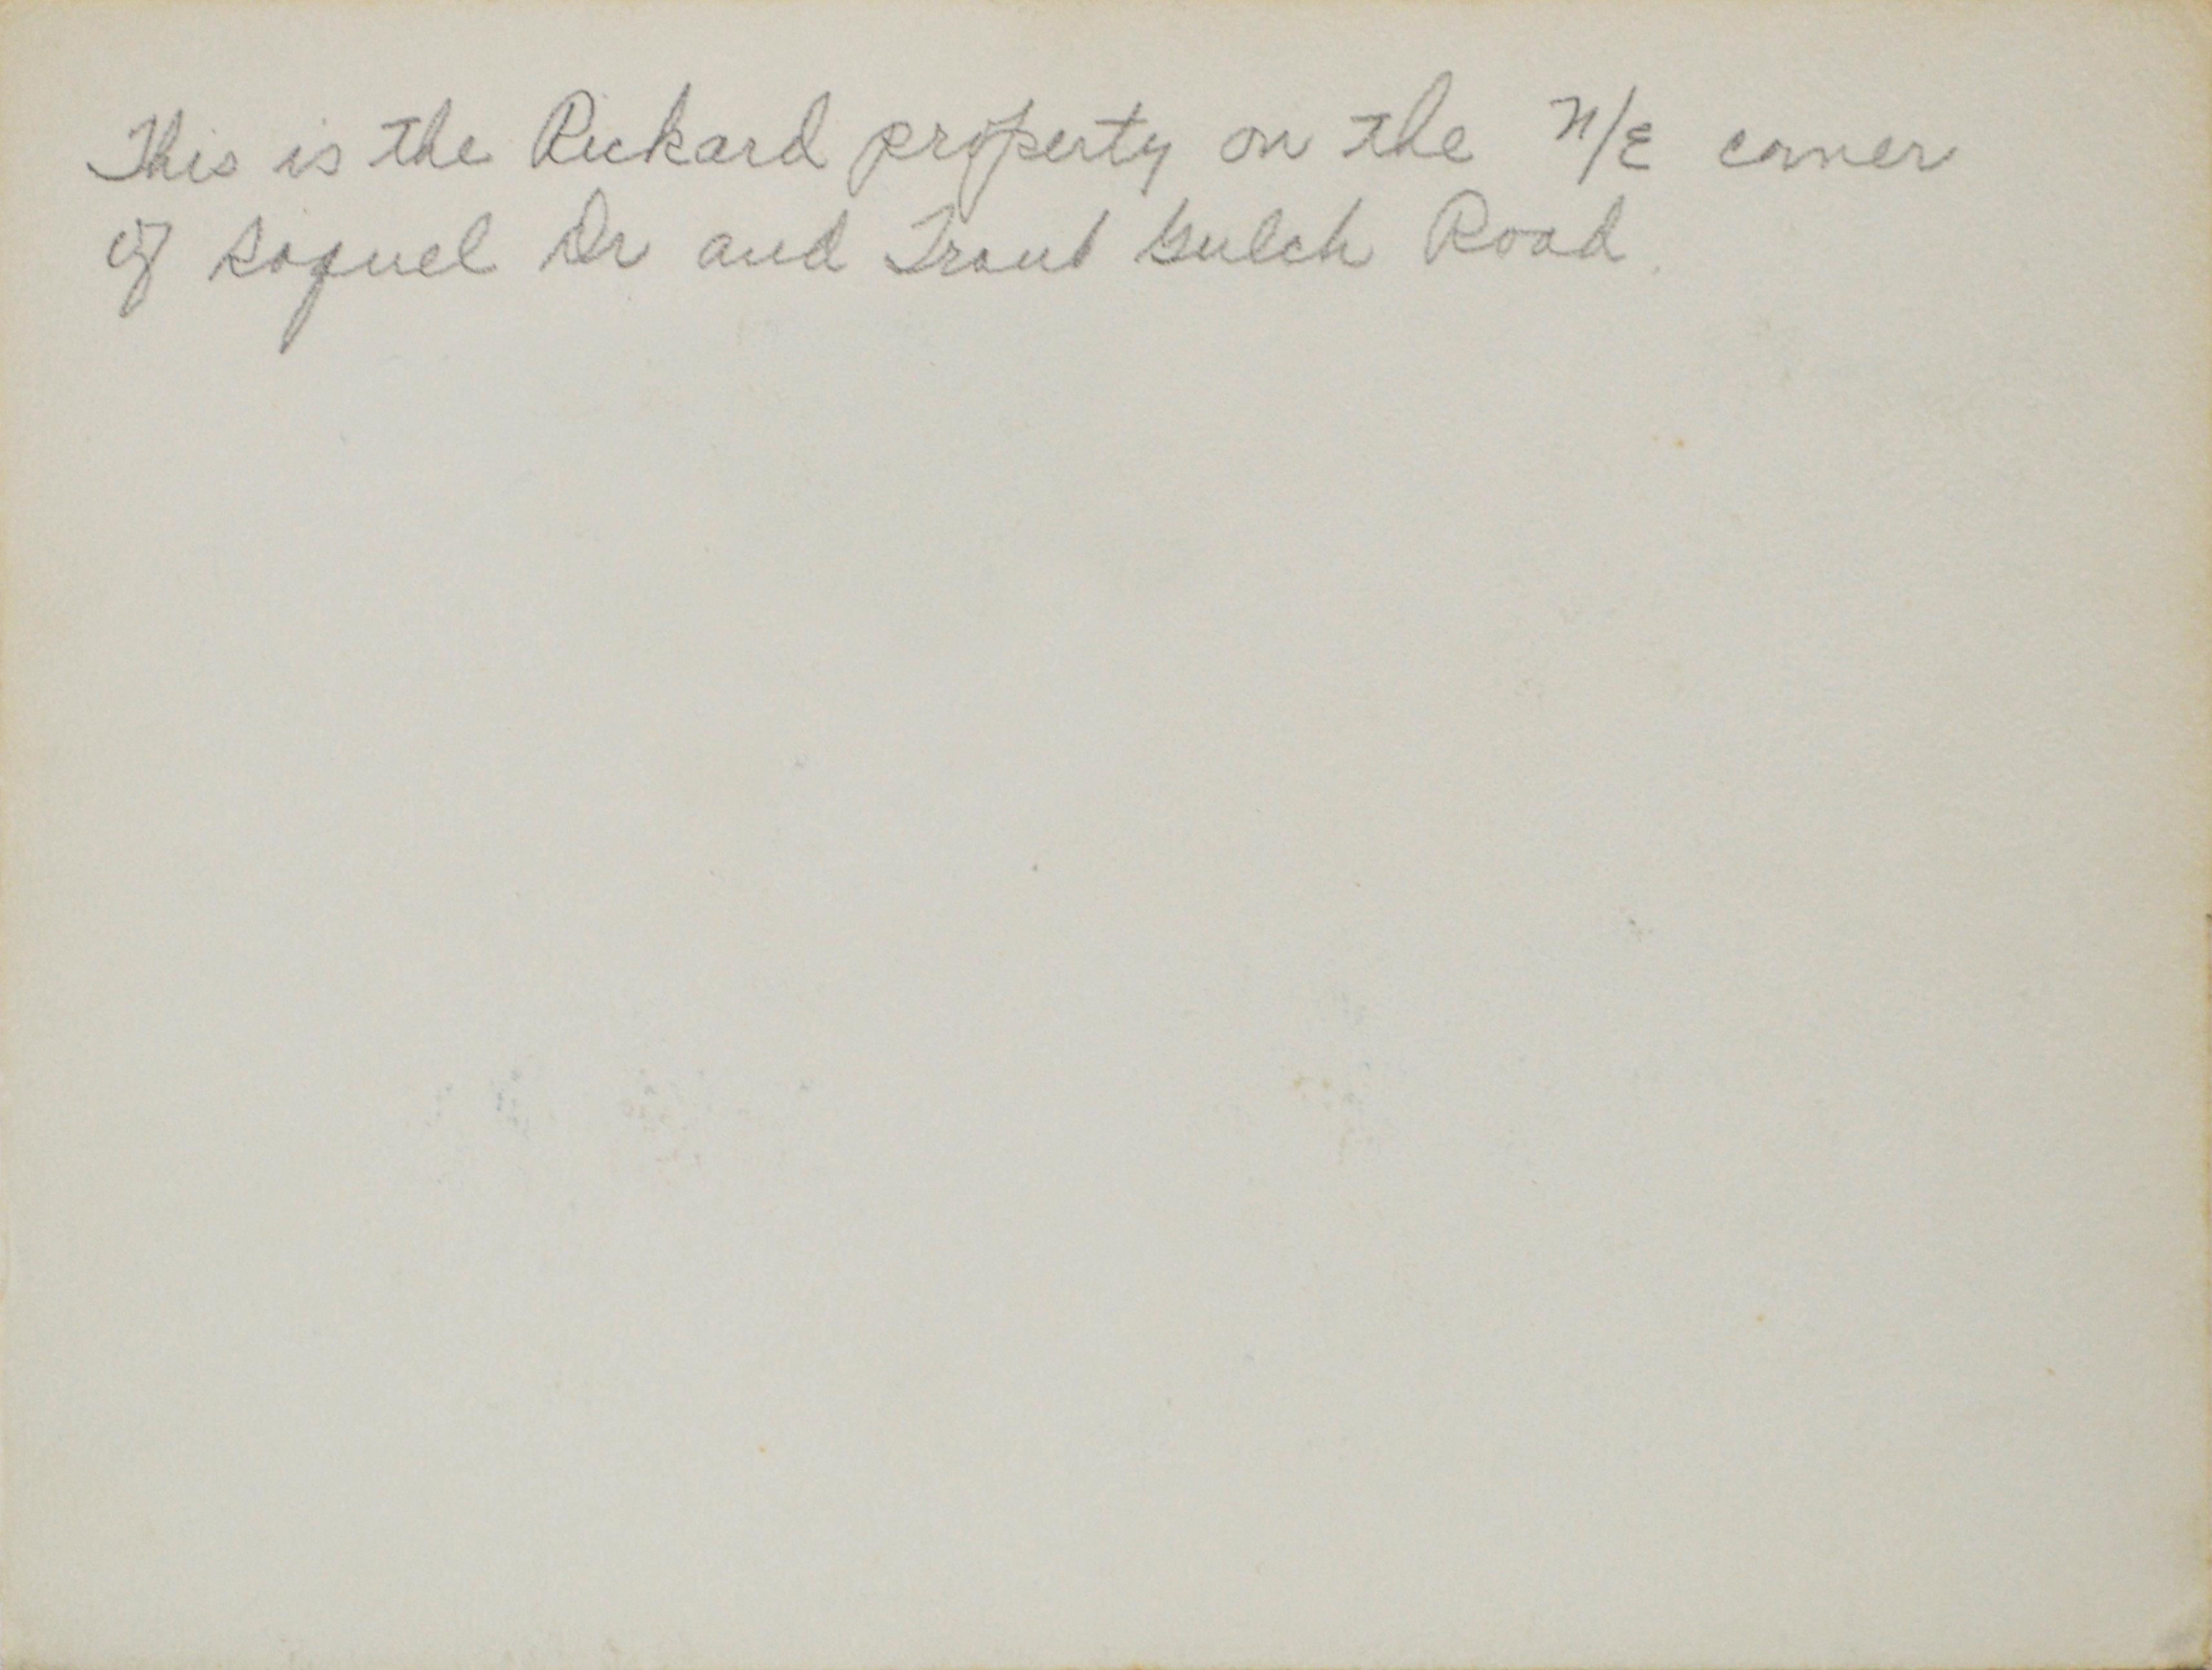 This is the Rickard property on the N/E corner
of Soquel Dr and Trout Gulch Road.